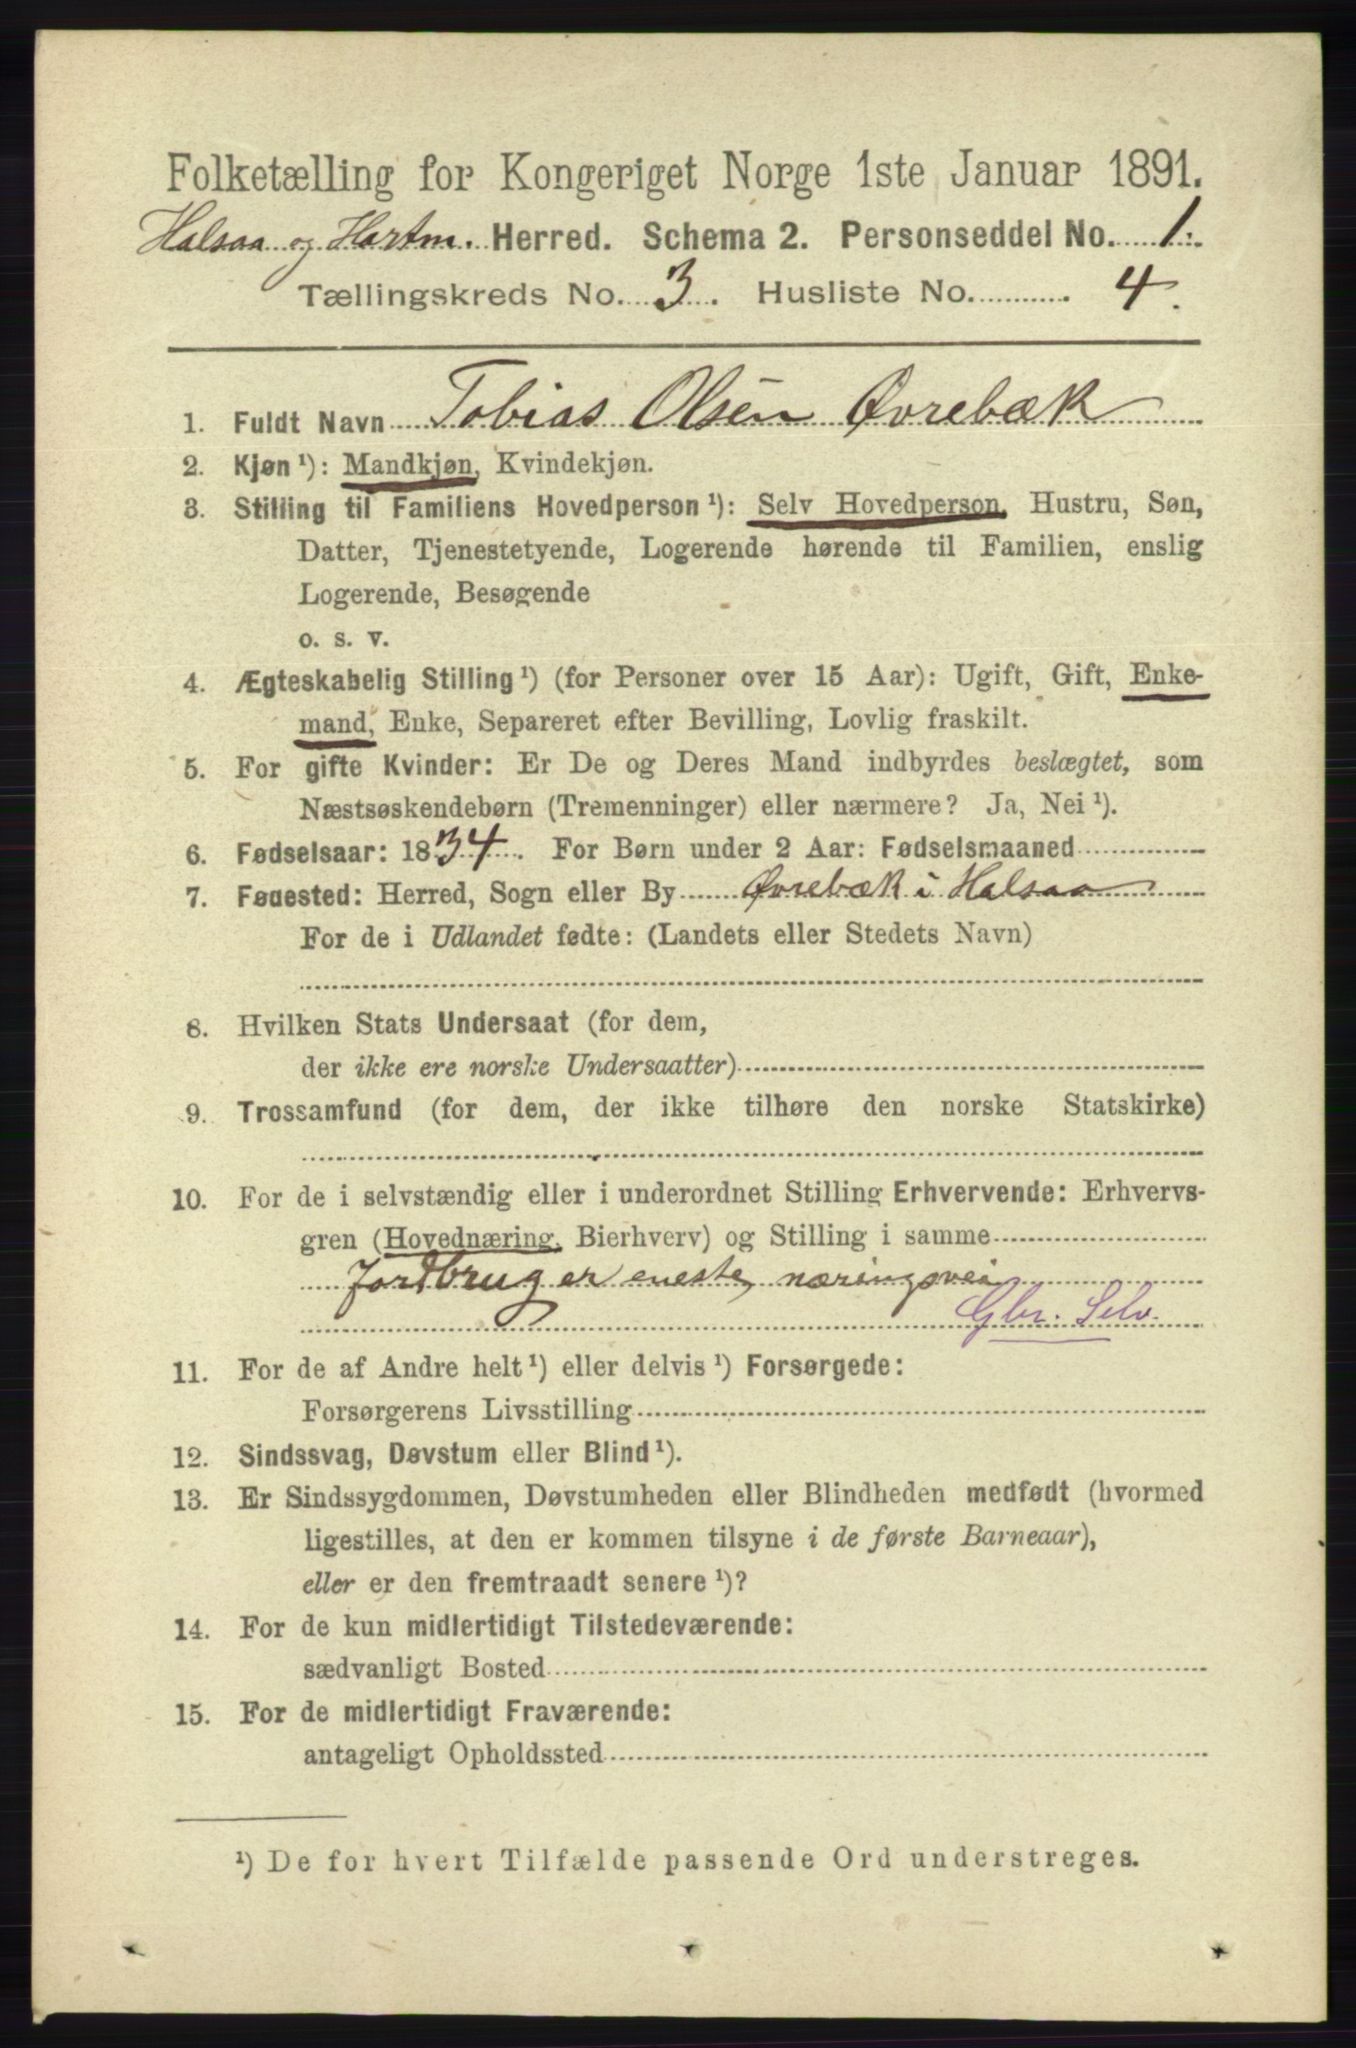 Folketælling for Kongeriget Norge 1ste Januar 1891.
Halsaa og Hartm. Herred. Schema 2. Personseddel No. 1.
Tællingskreds No. 3. Husliste No. 4.
1. Fuldt Navn Tobias Olsen Øvrebæk
2. Kjøn ¹): Mandkjøn, Kvindekjøn.
3. Stilling til Familiens Hovedperson ¹): Selv Hovedperson, Hustru, Søn,
Datter, Tjenestetyende, Logerende hørende til Familien, enslig
Logerende, Besøgende
o. s. v.
4. Ægteskabelig Stilling ¹) (for Personer over 15 Aar): Ugift, Gift, Enke-
mand, Enke, Separeret efter Bevilling, Lovlig fraskilt.
5. For gifte Kvinder: Er De og Deres Mand indbyrdes beslægtet, som
Næstsøskendebørn (Tremenninger) eller nærmere? Ja, Nei ¹).
6. Fødselsaar: 1834. For Børn under 2 Aar: Fødselsmaaned
7. Fødested: Herred, Sogn eller By Øvrebæk i Halsaa
For de i Udlandet fødte: (Landets eller Stedets Navn)
8. Hvilken Stats Undersaat (for dem,
der ikke ere norske Undersaatter)
9. Trossamfund (for dem, der ikke tilhøre den norske Statskirke)
10. For de i selvstændig eller i underordnet Stilling Erhvervende: Erhvervs-
gren (Hovednæring, Bierhverv) og Stilling i samme
Jordbrug er eneste næringsvei
Gbr. Selv.
11. For de af Andre helt ¹) eller delvis ¹) Forsørgede:
Forsørgerens Livsstilling
12. Sindssvag, Døvstum eller Blind ¹).
13. Er Sindssygdommen, Døvstumheden eller Blindheden medfødt (hvormed
ligestilles, at den er kommen tilsyne i de første Barneaar),
eller er den fremtraadt senere ¹)?
14. For de kun midlertidigt Tilstedeværende:
sædvanligt Bosted
15. For de midlertidigt Fraværende:
antageligt Opholdssted
¹) De for hvert Tilfælde passende Ord understreges.